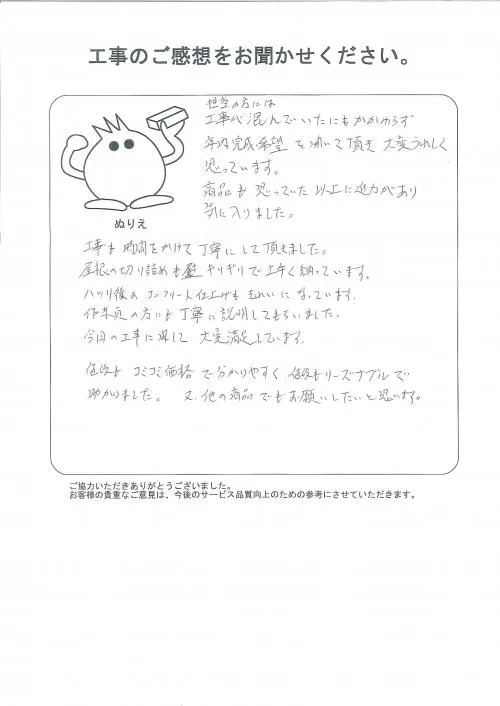 工事のご感想をお聞かせください。
担当の方には
工事が混んでいたにもかかわらず
年内完成希望を聞いて頂き大変うれしく
思っています。
商品も思っていた以上に迫力があり
気に入りました。
ぬりえ
工事も時間をかけて丁寧にして頂きました。
屋根の切り詰めもギリギリで上手く納っています。
ハツリ後のコンクリート仕上げもきれいになっています。
作業員の方にも丁寧に説明してもらいました。
今回の工事に関して大変満足しています。
値段もコミコミ価格で分かりやすく、値段もリーズナブルで
助かりました。又、他の商品でもお願いしたいと思います。
ご協力いただきありがとうございました。
お客様の貴重なご意見は、今後のサービス品質向上のための参考にさせていただきます。